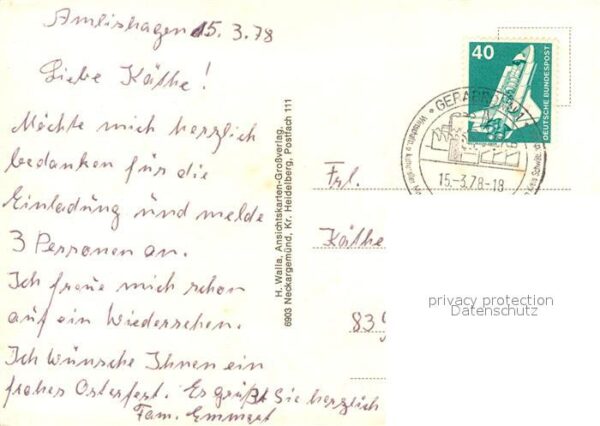 Amlishagen 15.3.78
Liebe Käthe!
Möchte mich herzlich
bedanken für die
Einladung und melde
3 Personen an.
Ich freue mich schon
auf ein Wiedersehen.
Ich wünsche Ihnen ein
frohes Osterfest. Es grüßt Sie herzlich
Fam. Emmert
H. Walla, Ansichtskarten-Großverlag,
6903 Neckargemünd, Kr. Heidelberg, Postfach 111
40
DEUTSCHE BUNDESPOST
GERABRONN
15.-3.78-18
Frl.
Käthe
839
privacy protection
Datenschutz